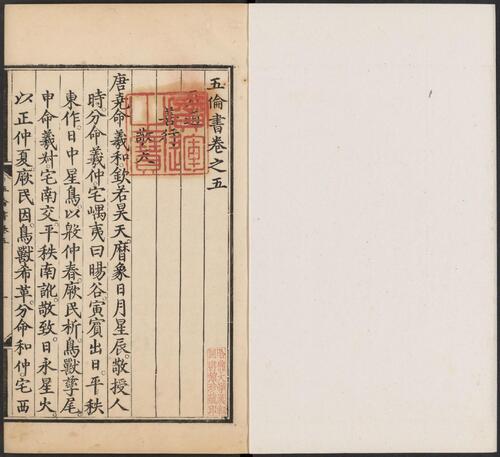 五倫書卷之五
君道
善行
敬天
唐堯命羲和欽若昊天曆象日月星辰敬授人
時分命羲仲宅嵎夷曰暘谷寅賓出日平秩
東作日中星鳥以殷仲春厥民析鳥獸孳尾
申命羲叔宅南交平秩南訛敬致日永星火
以正仲夏厥民因鳥獸希革分命和仲宅西